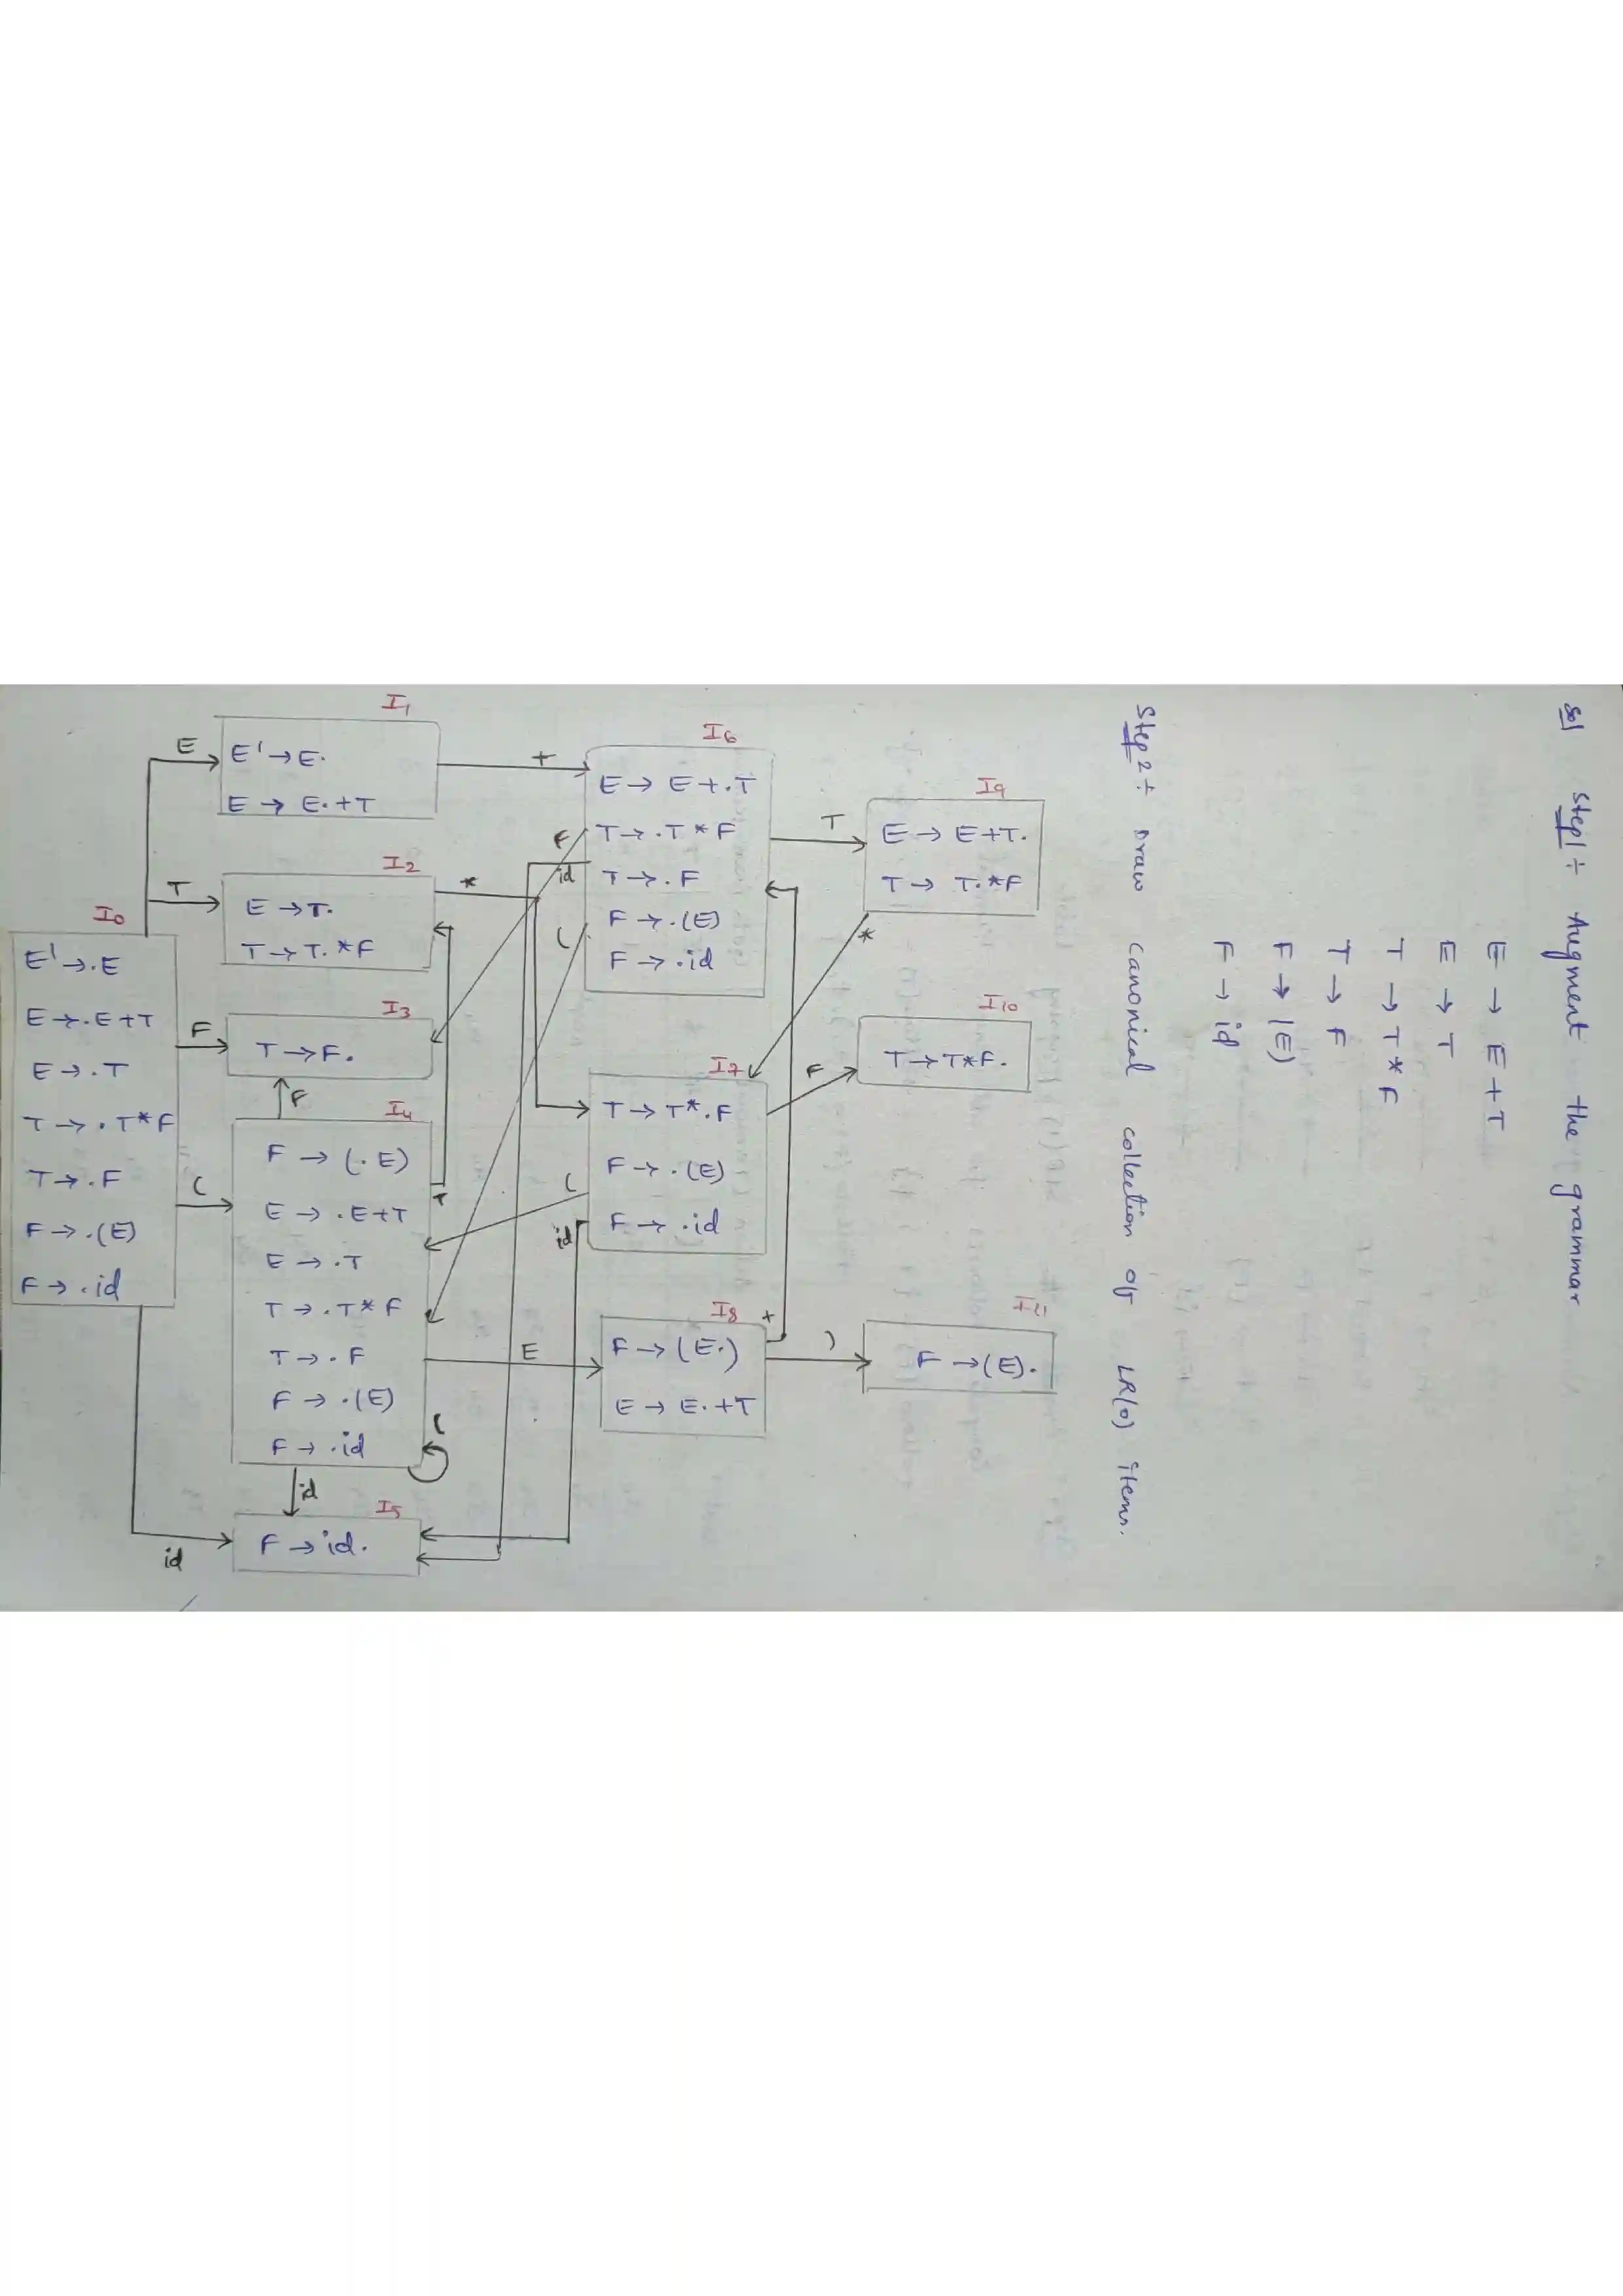 Sol Step 1÷ Augment the grammar
E → E+T
E → T
T → T*F
T → F
F → (E)
F → id
Step 2÷ Draw canonical collection of LR(0) items.
I0
E' → .E
E → .E+T
E → .T
T → .T*F
T → .F
F → .(E)
F → .id
E
T
F
(
id
I1
E' → E.
E → E.+T
+
I2
E → T.
T → T.*F
*
I3
T → F.
F
I4
F → (.E)
E → .E+T
E → .T
T → .T*F
T → .F
F → .(E)
F → .id
T
E
(
id
I5
F → id.
I6
E → E+.T
T → .T*F
T → .F
F → .(E)
F → .id
F
id
(
T
I7
T → T*.F
F → .(E)
F → .id
(
id
F
I8
F → (E.)
E → E.+T
+
)
I9
E → E+T.
T → T.*F
*
I10
T → T*F.
I11
F → (E).